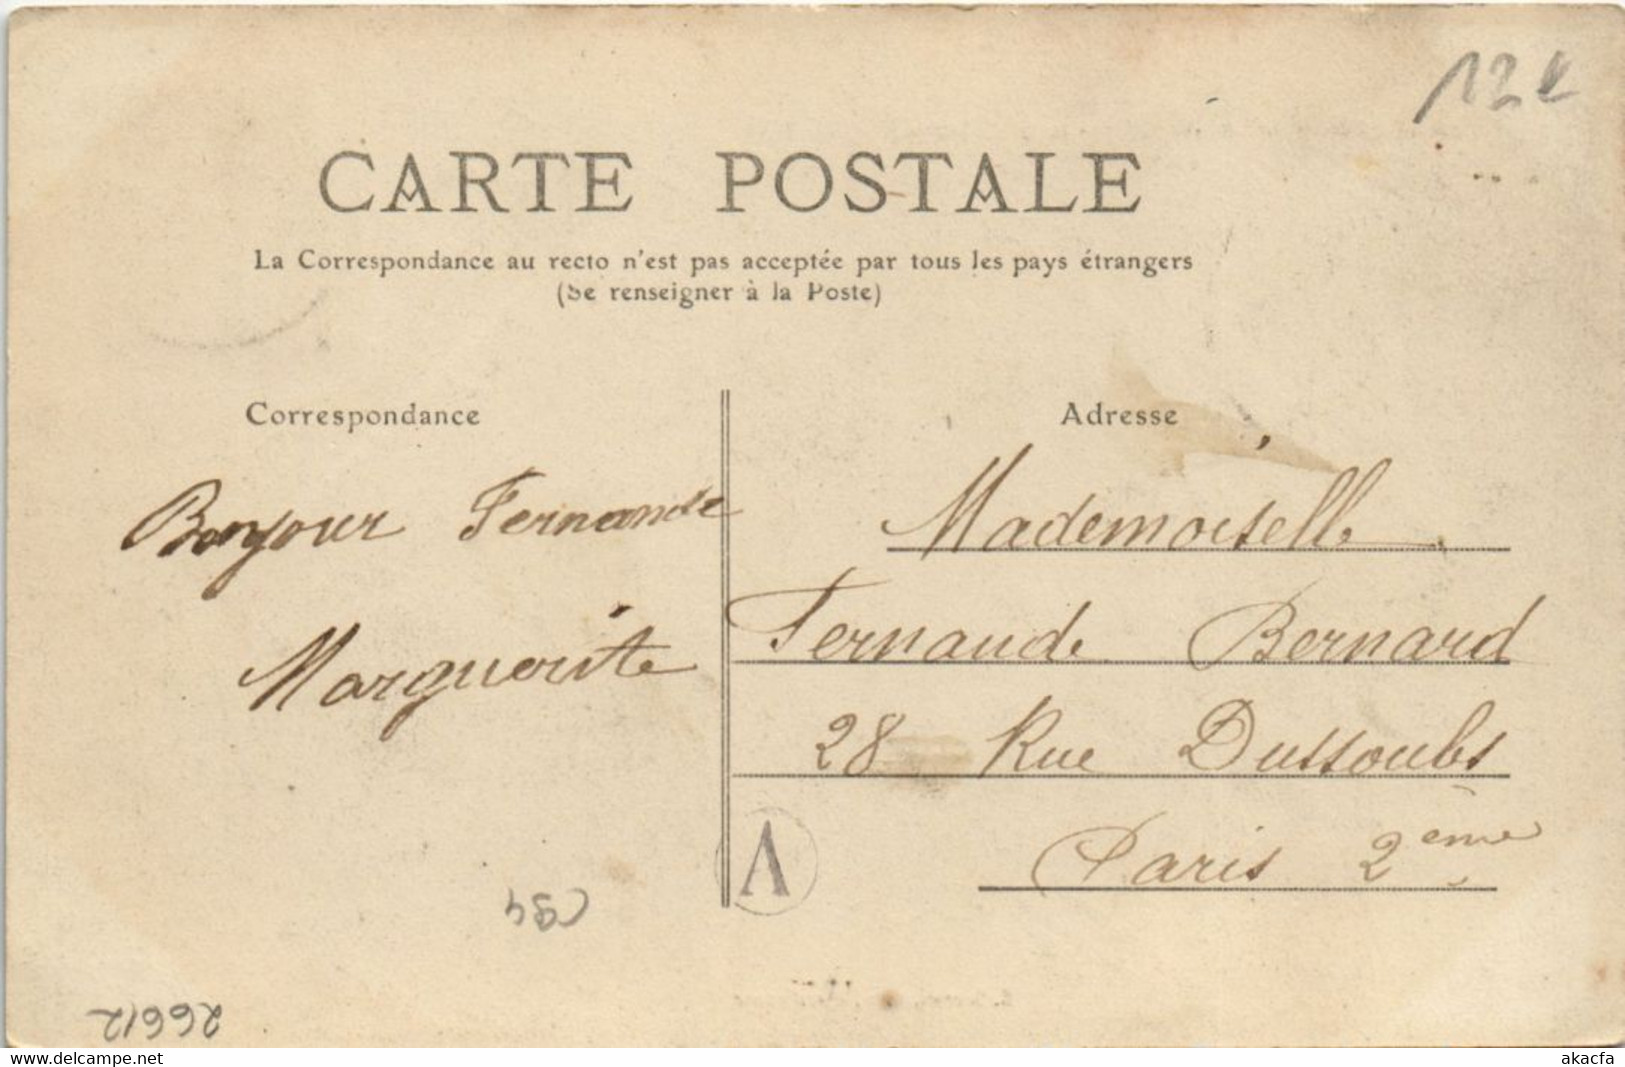 12€
CARTE POSTALE
La Correspondance au recto n'est pas acceptée par tous les pays étrangers
(Se renseigner à la Poste)
Correspondance
Bonjour Fernande
Marguerite
Adresse
Mademoiselle
Fernande Bernard
28 Rue Dussoubs
Paris 2ème
A
C94
26612
delcampe.net
akacfa